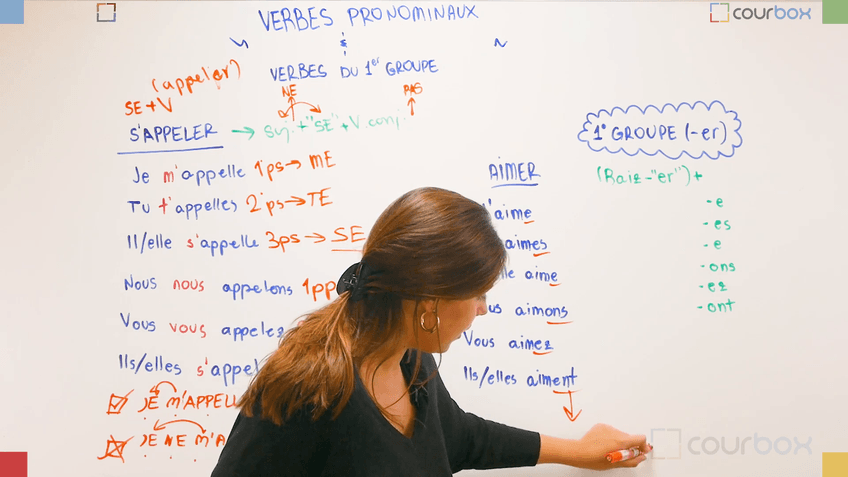 VERBES PRONOMINAUX
courbox
&
VERBES DU 1er GROUPE
(appeler)
SE+V
NE
PAS
S'APPELER → Suj. + "SE" + V. conj.
Je m'appelle 1ps → ME
Tu t'appelles 2ps → TE
Il/elle s'appelle 3ps → SE
Nous nous appelons 1pp
Vous vous appelez
Ils/elles s'appel
☑ JE M'APPELL
☒ JE NE M'A
AIMER
'aime
aimes
le aime
us aimons
Vous aimez
Ils/elles aiment
1° GROUPE (-er)
(Raiz -"er") +
-e
-es
-e
-ons
-ez
-ont
courbox